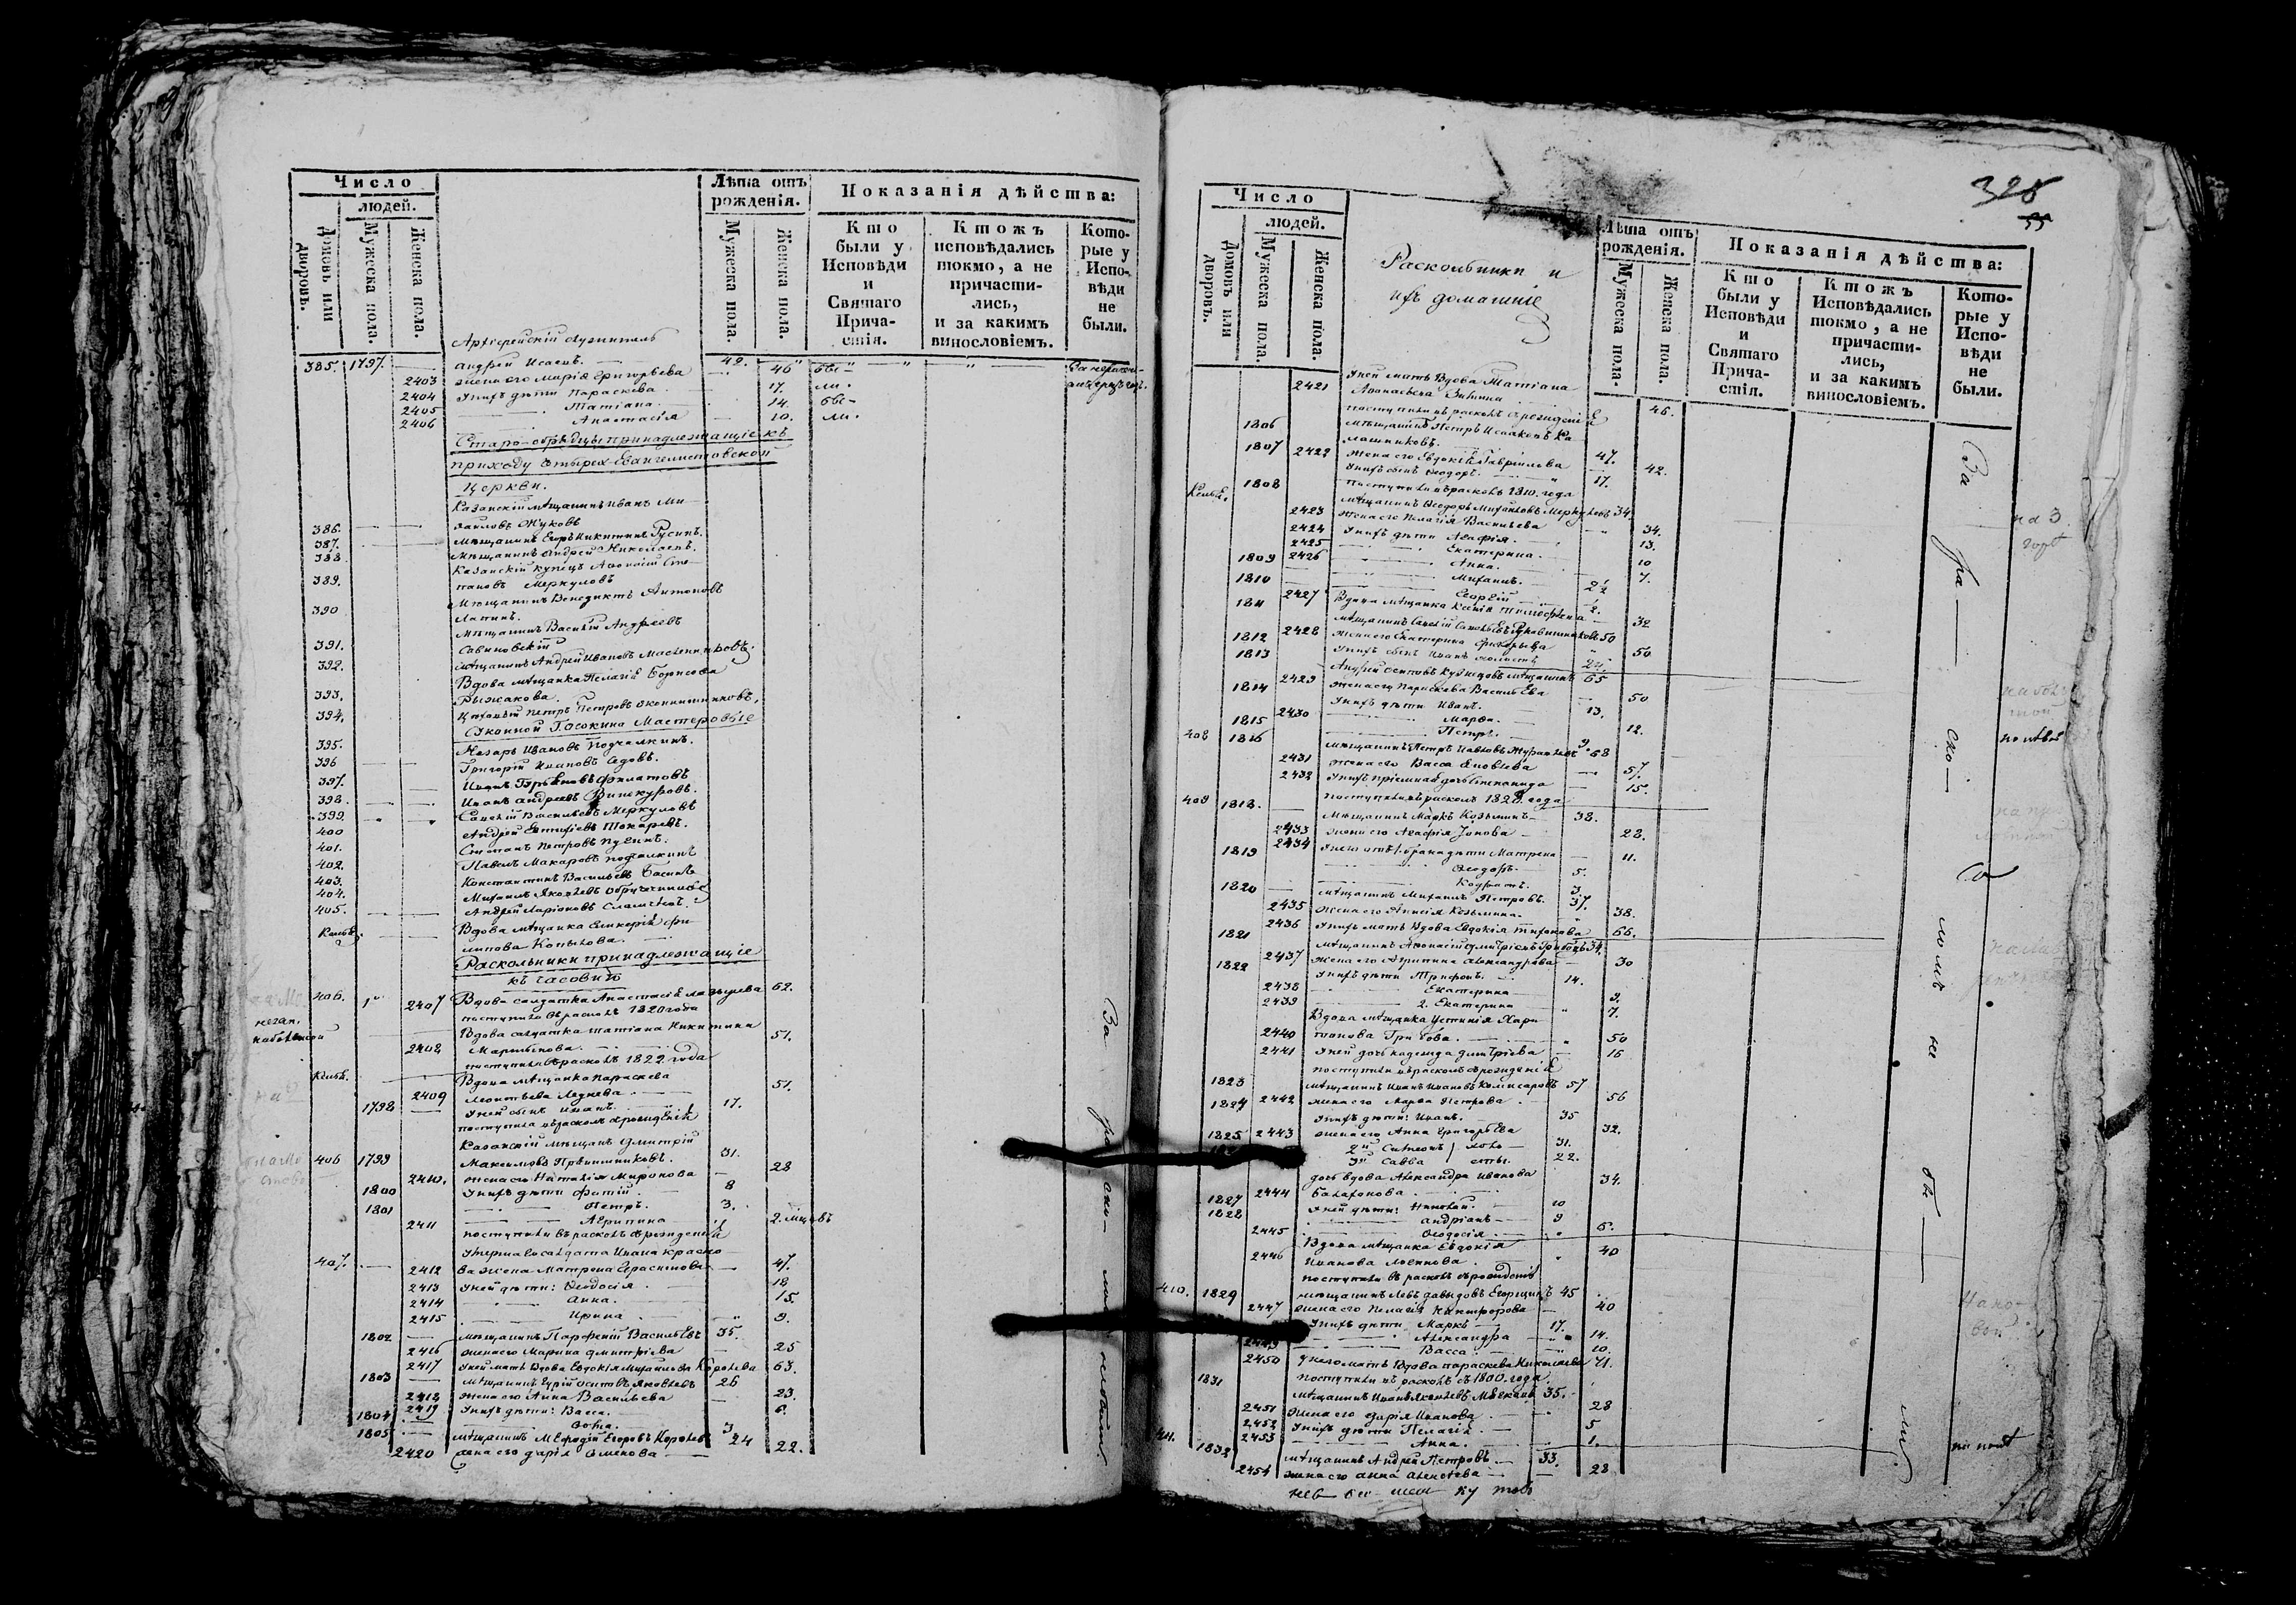 Число
людей.
Домовъ или дворовъ.
Мужеска пола.
Женска пола.
Лѣта отъ рожденія.
Мужеска пола.
Женска пола.
Показанія дѣйства:
Кто были у Исповѣди и Святаго Причастія.
Ктожъ исповѣдались токмо, а не причастились, и за какимъ винословіемъ.
Которые у Исповѣди не были.
Архіерейскій служитель
385. 1797. Андрей Исаевъ. 42.
2403 жена его Марія Григорьева 46
2404 У нихъ дѣти Параскева 17.
2405 Татіана 14.
2406 Анастасія 10.
Старо-обрядцы принадлежащіе къ
приходу Четырех-Евангелистовской
церкви.
Казанскій мѣщанинъ Иванъ Ми-
386. хаиловъ Жуковъ
387. Мѣщанинъ Егоръ Никитинъ Русинъ.
388 Мѣщанинъ Андрей Николаевъ.
Казанскій купецъ Афонасій Сте-
389. пановъ Меркуловъ
Мѣщанинъ Венедиктъ Антоновъ
390 Лапинъ.
Мѣщанинъ Василій Андреевъ
391. Савиновскій
392. Мѣщанинъ Андрей Ивановъ Масленниковъ.
Вдова мѣщанка Пелагія Борисова
393. Рыжакова.
394. Цеховый Петръ Петровъ Оконишниковъ,
Суконной Гасокина Мастеровые
395. Назаръ Ивановъ Подчалкинъ.
396 Григорій Ивановъ Седовъ.
397. Иванъ Гурьяновъ Филатовъ
398. Иванъ Андреевъ Винокуровъ.
399. Савелій Васильевъ Меркуловъ
400 Андрей Евтифіевъ Токаревъ.
401. Степанъ Петровъ
402. Павелъ Макаровъ Подчалкинъ
403. Константинъ Васильевъ
404. Михаилъ Яковлевъ Обручниковъ
405. Андрей Ларіоновъ
Вдова мѣщанка Гликерія Фи-
липова Копылова.
Раскольники принадлежащіе
къ часовнѣ
406. 2407 Вдова солдатка Анастасія 62.
поступила въ расколъ 1820 года
Вдова солдатка Татіана Никитина 51.
2408 Мартынова.
поступила въ расколъ 1822. года
Вдова мѣщанка Параскева
2409 Леонтьева Леднева 51.
1798 У ней сынъ Иванъ. 17.
поступила въ расколъ съ рожденія
Казанскій мѣщанъ Дмитрій
406 1799 Максимовъ Прянишниковъ. 31.
2410. жена его Наталія Миронова 28
1800 У нихъ дѣти Фотій 8
1801 Петръ. 3.
2411 Агрипина 2. мцовъ
поступили въ расколъ съ рожденія
Умершаго солдата Ивана Красно-
407. 2412 ва жена Матрона Герасимова 47.
2413 У ней дѣти: Феодосія 18
2414 Анна. 15.
2415 Ирина 9.
1802 Мѣщанинъ Парфеній Васильевъ 35.
2416 жена его Марина Дмитріева 25
2417 У ней мать Вдова Евдокія Михайлова Королева 63.
1803 Мѣщанинъ Гурій Осиповъ Яковлевъ 26
2418 жена его Анна Васильева 23.
2419 У нихъ дѣти: Васса. 6.
1804 Фома. 3
1805 Мѣщанинъ Мефодій Егоровъ Королевъ 24
2420 жена его Дарія Семенова 22.
За раско-ломъ не были.
328
Число
людей.
Домовъ или дворовъ.
Мужеска пола.
Женска пола.
Раскольники и
ихъ домашніе
Лѣта отъ рожденія.
Мужеска пола.
Женска пола.
Показанія дѣйства:
Кто были у Исповѣди и Святаго Причастія.
Ктожъ Исповѣдались токмо, а не причастились, и за какимъ винословіемъ.
Которые у Исповѣди не были.
У ней мать Вдова Татіана
2421 Афонасьева Зыбина 46.
поступили въ расколъ съ рожденія
1806 Мѣщанинъ Петръ Исаковъ Ка-
лашниковъ. 47.
1807 2422 жена его Евдокія Гавріилова 42.
У нихъ сынъ Феодоръ. 17.
1808 поступили въ расколъ 1810. года
Мѣщанинъ Феодоръ Михаиловъ Меркуловъ 34.
2423 жена его Пелагія Васильева 34.
2424 У нихъ дѣти Агафія. 13.
2425 Екатерина 10
1809 2426 Анна. 7.
1810 Михаилъ. 2½
Георгій ½.
2427 Вдова мѣщанка Ксенія Тимофеева 32
1811 Мѣщанинъ Савелій Савельевъ Рукавишниковъ 50
1812 2428 жена его Екатерина Григорьева 50
1813 У нихъ сынъ Иванъ холостъ 24.
Андрей Осиповъ Кузнецовъ мѣщанинъ 65
2429 жена его Параскева Васильева 50
1814 У нихъ дѣти Иванъ. 13.
2430 Марфа. 12.
1815 Петръ. 9.
408 1816 Мѣщанинъ Петръ Павловъ Журавлевъ 68
2431 жена его Васса Яковлева 57.
2432 У нихъ пріемная дочь Степанида 15.
поступили въ расколъ 1828. года
409 1818. Мѣщанинъ Маркъ Козьминъ 38.
2433 жена его Агафія Іонова 28.
2434 У него отъ 1. брака дѣти Матрена 11.
1819 Феодоръ. 5.
Кодратъ. 3.
1820 Мѣщанинъ Михаилъ Петровъ. 37.
2435 жена его Анисія Козьмина. 38.
2436 У нихъ мать Вдова Евдокія Тихонова 66.
1821 Мѣщанинъ Афонасій Дмитріевъ Грибовъ 34.
2437 жена его Агрипина Александрова 30
1822 У нихъ дѣти Трифонъ. 14.
2438 Екатерина 9.
2439 2. Екатерина 7.
Вдова мѣщанка Устинія Хари-
2440 тонова Грибова. 50
2441 У ней дочь Надежда Дмитріева 16
поступили въ расколъ съ рожденія
1823 Мѣщанинъ Иванъ Ивановъ Комисаровъ 57
2442 жена его Марфа Петрова 56
1824 У нихъ дѣти: Иванъ. 35
2443 жена его Анна Григорьева 32.
1825 2й Симеонъ холо- 31.
3й Савва сты. 22.
дочь вдова Александра Иванова
2444 Балахонова 34.
1827 У ней дѣти: Николай. 10
1828 Андріанъ 9
2445 Феодосія 6.
Вдова мѣщанка Евдокія
2446 Иванова 40
поступили въ расколъ съ рожденія
410. 1829 Мѣщанинъ Левъ Давыдовъ 45
2447 жена его Пелагія Никифорова 40
У нихъ дѣти Маркъ 17.
Александра 14.
2449 Васса 10.
2450 У него мать Вдова Параскева Николаева 71.
поступили въ расколъ съ 1800. года
1831 Мѣщанинъ Иванъ Яковлевъ 35.
2451 жена его Дарія Иванова 28
2452 У нихъ дѣти Пелагія 5
2453 Анна. 1.
411. 1832 Мѣщанинъ Андрей Петровъ 33.
2454 жена его Анна Алексеева 28
За раско-ломъ не бы-ли.